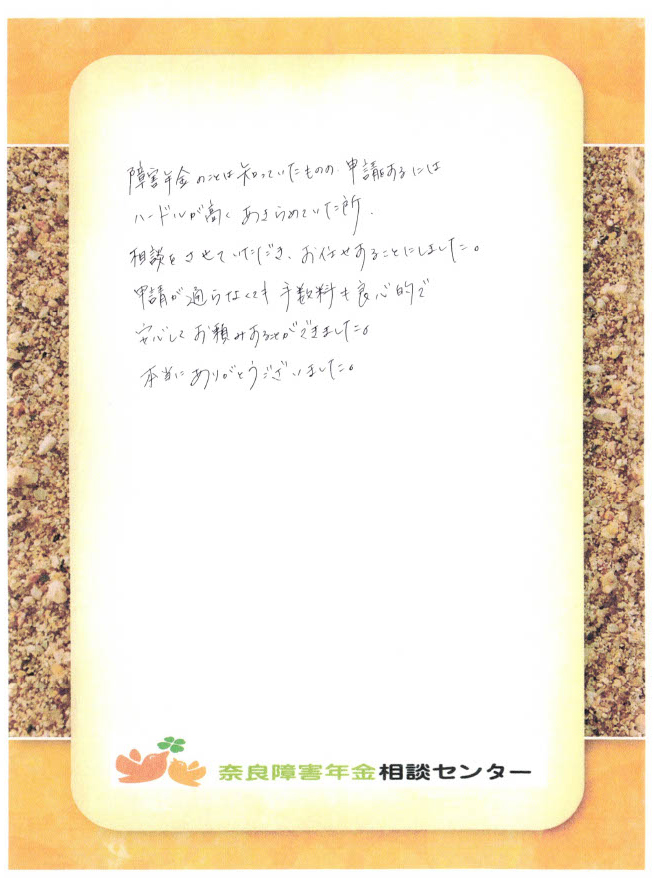 障害年金のことは知っていたものの、申請するには
ハードルが高く あきらめていた所、
相談をさせていただき、お任せすることにしました。
申請が通らなくても 手数料も良心的で
安心して お頼みすることができました。
本当に ありがとうございました。
奈良障害年金相談センター